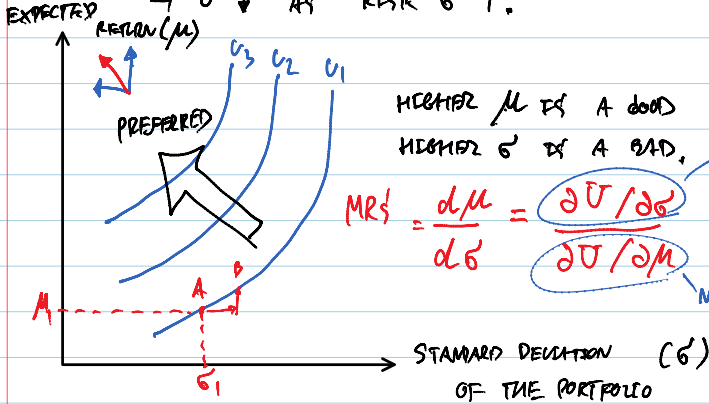 → U ↓ AS RISK σ ↑.
EXPECTED
RETURN (μ)
U3 U2 U1
PREFERRED
HIGHER μ IS A GOOD
HIGHER σ IS A BAD.
MRS = dμ/dσ = ∂U/∂σ / ∂U/∂μ
A B
μ
σ1
STANDARD DEVIATION (σ)
OF THE PORTFOLIO